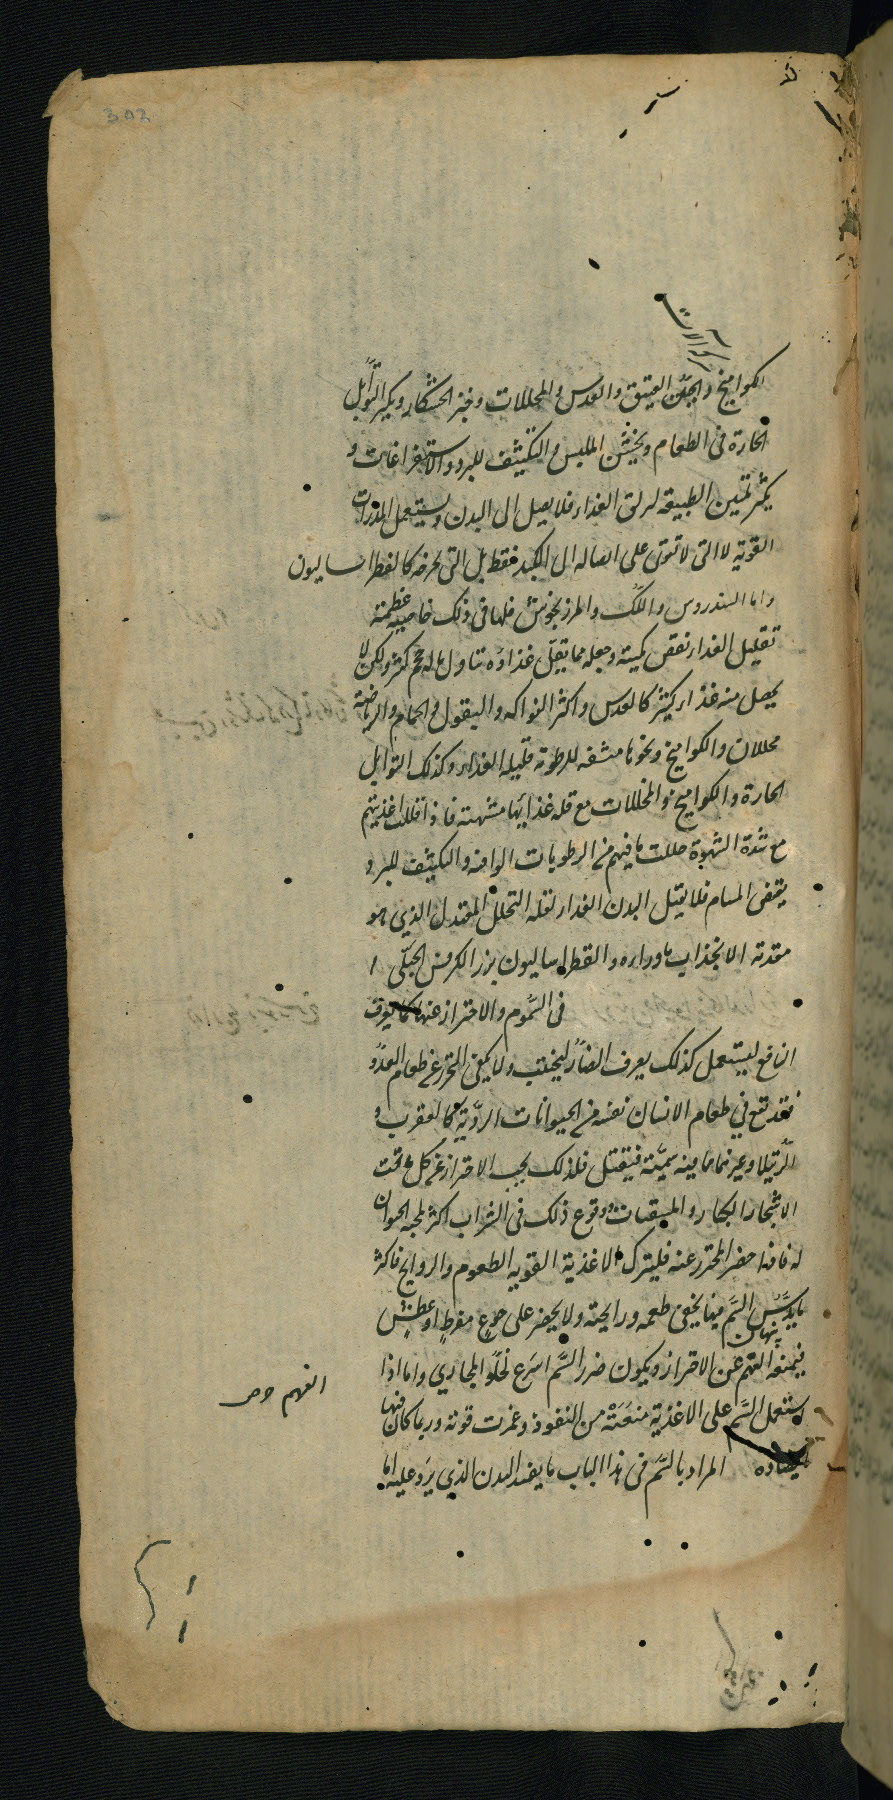 الكواميخ والجبن العتيق والعدس والمخللات وخبز الخشكار ويكثر التوابل
الحارة فى الطعام ويخشن الملبس والتكثيف للبرد والاستفراغات و
يكثر تليين الطبيعه لزلق الغذاء فلا يصل الى البدن ويستعمل المدرات
القويه لا التى لا تقوى على ايصاله الى الكبد فقط بل التى كالفطراساليون
واما السندروس واللك والمرزنجوش فلها فى ذلك خاصيه عظيمة
تقليل الغذاء نقص كميته وجعله مما يقل غذاؤه تناول ما له حجم كثير ولكن لا
يحصل منه غذاء كثير كالعدس واكثر الفواكه والبقول والحمام والرياضة
محللان والكواميخ ونحوها منشفه للرطوبة قليله الغذاء وكذلك التوابل
الحارة والكواميخ والمخللات مع قله غذائها مشهية فاذا قللت اغذيتهم
مع شدة الشهوة حللت ما فيهم من الرطوبات والتكثيف للبرد
يقبض المسام فلا يقبل البدن الغذاء لقله التحلل المعتدل الذي هو
مقدمة الانجذاب ما وراءه والفطراساليون بزر الكرفس الجبلى
فى السموم والاحتراز عنها كما يعرف
النافع ليستعمل كذلك يعرف الضار ليجتنب ولا يكفى التحرز عن طعام العدو
فقد تقع في طعام الانسان نفسه من الحيوانات الردية كالعقرب و
الرتيلا وغيرهما مما فيه سمية فيقتل فلذلك يجب الاحتراز عن كل ما تحت
الاشجار الكبار والمسقفات ووقوع ذلك فى الشراب اكثر لمحبة الحيوان
له فاذا حضر المحترز عنه فليترك الاغذية القويه الطعوم والروايح فاكثر
ما يدس السم فيما يخفى طعمه ورايحته ولا يحضر على جوع مفرط او عطش
فيمنعه النهم عن الاحتراز ويكون ضرر السم اسرع لخلو المجاري واما اذا
استعمل السم على الاغذية منعته من النفوذ وغمرت قوته وربما كان فيها
المراد بالسم فى هذا الباب ما يفسد البدن الذي يرد عليه اما
302